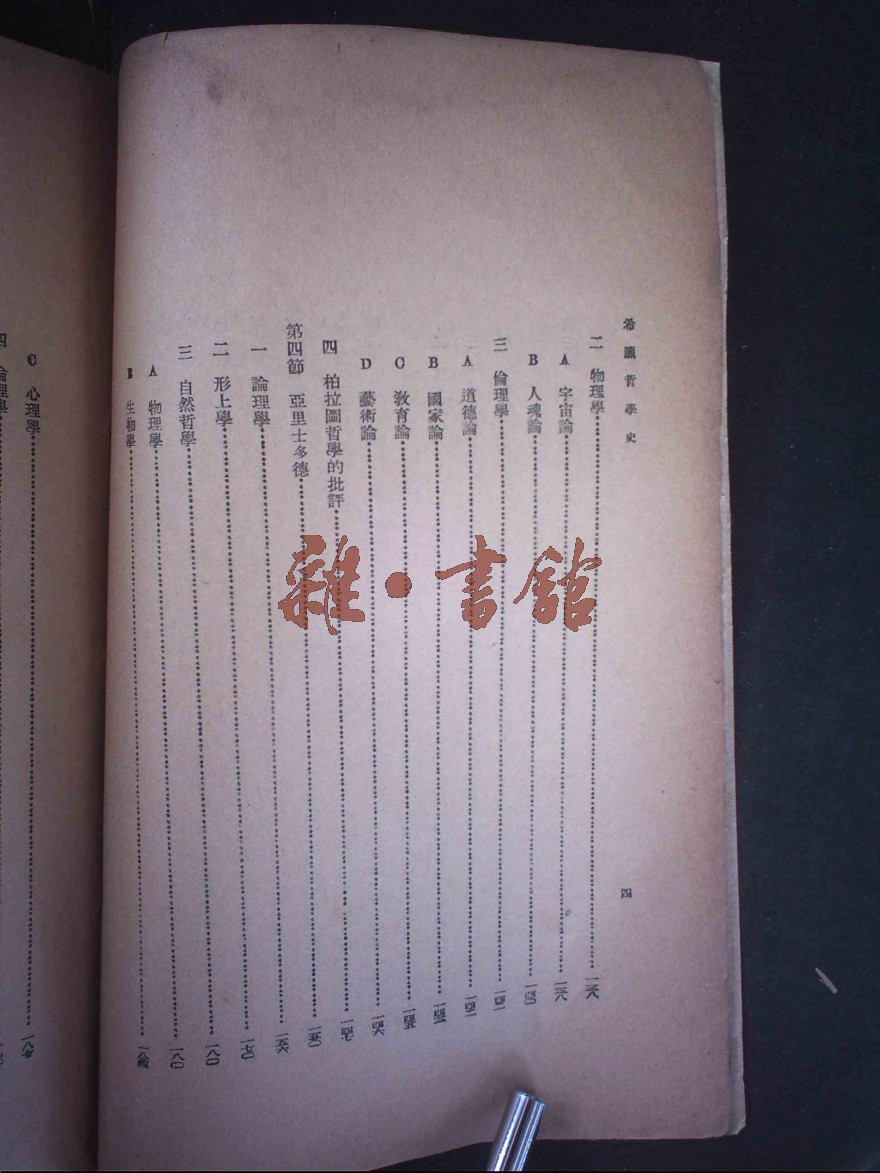 希臘哲學史
四
二 物理學 一三八
A 宇宙論 一三八
B 人魂論 一四〇
三 倫理學 一四一
A 道德論 一四一
B 國家論
C 敎育論 一四五
D 藝術論 一四六
四 柏拉圖哲學的批評 一四七
第四節 亞里士多德 一五〇
一 論理學 一五六
二 形上學 一七〇
三 自然哲學 一八〇
A 物理學 一八〇
B 生物學
C 心理學 一八七
四 倫理學
雜·書館